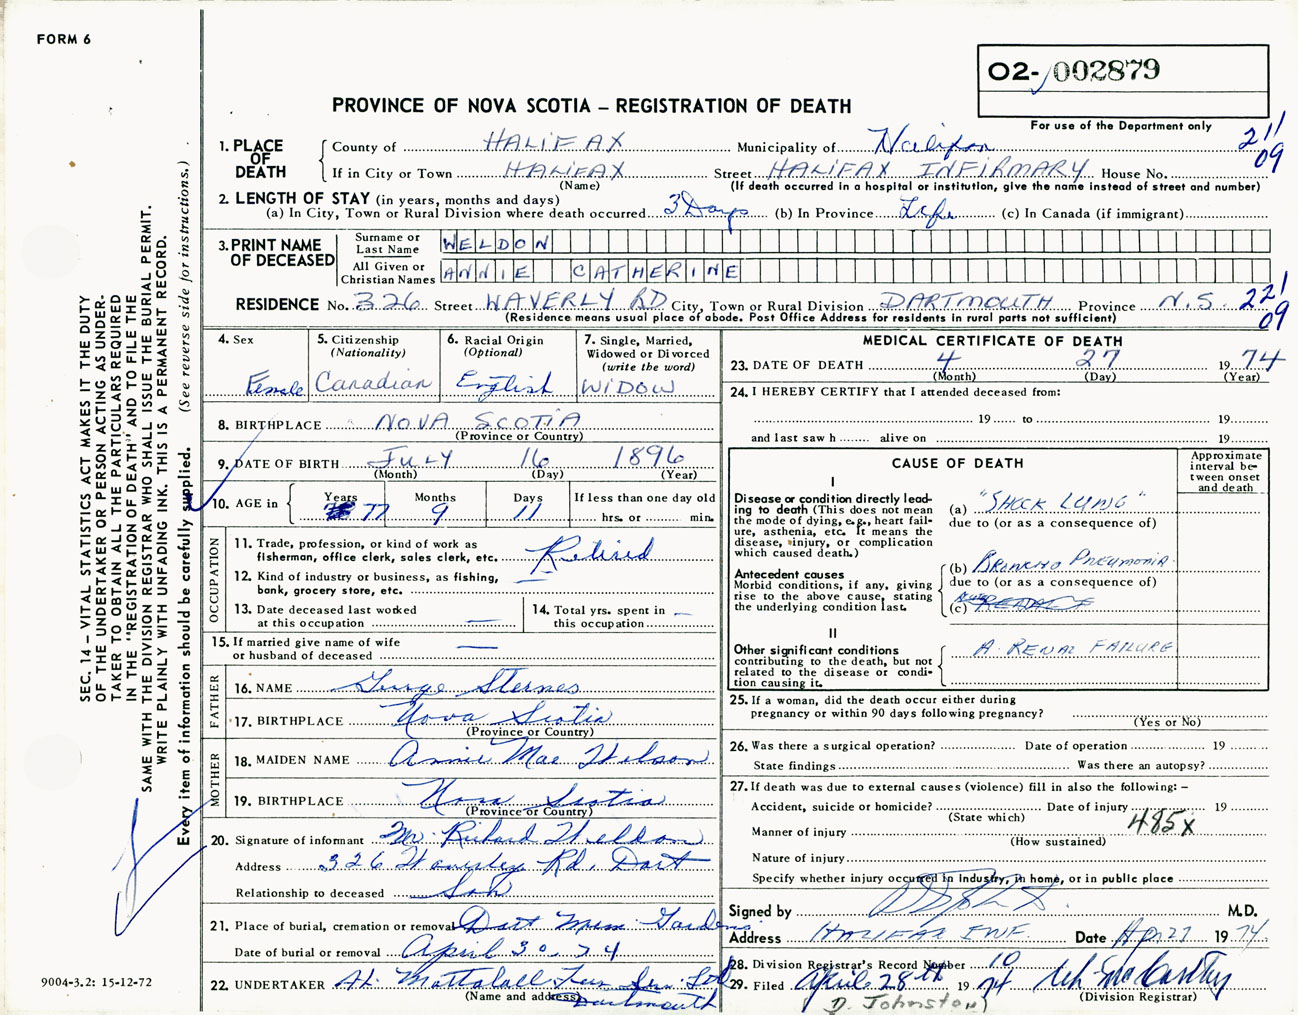 FORM 6
O2- 002879
PROVINCE OF NOVA SCOTIA – REGISTRATION OF DEATH
For use of the Department only
SEC. 14 – VITAL STATISTICS ACT MAKES IT THE DUTY
OF THE UNDERTAKER OR PERSON ACTING AS UNDER-
TAKER TO OBTAIN ALL THE PARTICULARS REQUIRED
IN THE "REGISTRATION OF DEATH" AND TO FILE THE
SAME WITH THE DIVISION REGISTRAR WHO SHALL ISSUE THE BURIAL PERMIT.
WRITE PLAINLY WITH UNFADING INK. THIS IS A PERMANENT RECORD.
Every item of information should be carefully supplied. (See reverse side for instructions.)
1. PLACE OF DEATH County of HALIFAX Municipality of Halifax 211
If in City or Town HALIFAX Street HALIFAX INFIRMARY House No. 09
(Name) (If death occurred in a hospital or institution, give the name instead of street and number)
2. LENGTH OF STAY (in years, months and days)
(a) In City, Town or Rural Division where death occurred 3 Days (b) In Province Life (c) In Canada (if immigrant)
3. PRINT NAME OF DECEASED Surname or Last Name WELDON
All Given or Christian Names ANNIE CATHERINE
RESIDENCE No. 326 Street WAVERLY RD City, Town or Rural Division DARTMOUTH Province N.S. 221
(Residence means usual place of abode. Post Office Address for residents in rural parts not sufficient) 09
4. Sex Female
5. Citizenship (Nationality) Canadian
6. Racial Origin (Optional) English
7. Single, Married, Widowed or Divorced (write the word) WIDOW
8. BIRTHPLACE NOVA SCOTIA
(Province or Country)
9. DATE OF BIRTH JULY 16 1896
(Month) (Day) (Year)
10. AGE in { Years 77 Months 9 Days 11 If less than one day old
hrs. or min.
OCCUPATION
11. Trade, profession, or kind of work as
fisherman, office clerk, sales clerk, etc. Retired
12. Kind of industry or business, as fishing,
bank, grocery store, etc. —
13. Date deceased last worked
at this occupation —
14. Total yrs. spent in —
this occupation
15. If married give name of wife
or husband of deceased —
FATHER
16. NAME George Sternes
17. BIRTHPLACE Nova Scotia
(Province or Country)
MOTHER
18. MAIDEN NAME Annie Mae Wilson
19. BIRTHPLACE Nova Scotia
(Province or Country)
20. Signature of informant Mr. Richard Weldon
Address 326 Waverley Rd. Dart
Relationship to deceased Son
21. Place of burial, cremation or removal Dart Mem. Gardens
Date of burial or removal April 30. 74
22. UNDERTAKER At. Mattatall Fun. Ltd
(Name and address) Dartmouth
9004-3.2: 15-12-72
MEDICAL CERTIFICATE OF DEATH
23. DATE OF DEATH 4 27 1974
(Month) (Day) (Year)
24. I HEREBY CERTIFY that I attended deceased from:
19 to 19
and last saw h alive on 19
CAUSE OF DEATH
Approximate
interval be-
tween onset
and death
I
Disease or condition directly lead-
ing to death (This does not mean
the mode of dying, e.g., heart fail-
ure, asthenia, etc. It means the
disease, injury, or complication
which caused death.)
(a) "SHOCK LUNG"
due to (or as a consequence of)
Antecedent causes
Morbid conditions, if any, giving
rise to the above cause, stating
the underlying condition last.
(b) BRONCHO PNEUMONIA
due to (or as a consequence of)
(c)
II
Other significant conditions
contributing to the death, but not
related to the disease or condi-
tion causing it.
A RENAL FAILURE
25. If a woman, did the death occur either during
pregnancy or within 90 days following pregnancy?
(Yes or No)
26. Was there a surgical operation? Date of operation 19
State findings Was there an autopsy?
27. If death was due to external causes (violence) fill in also the following: –
Accident, suicide or homicide? Date of injury 19
(State which) 485X
Manner of injury
(How sustained)
Nature of injury
Specify whether injury occurred in Industry, in home, or in public place
Signed by M.D.
Address HALIFAX INF. Date Ap 27 1974
28. Division Registrar's Record Number 10
29. Filed April 28th 1974 McCarthy
(Division Registrar)
D. Johnston